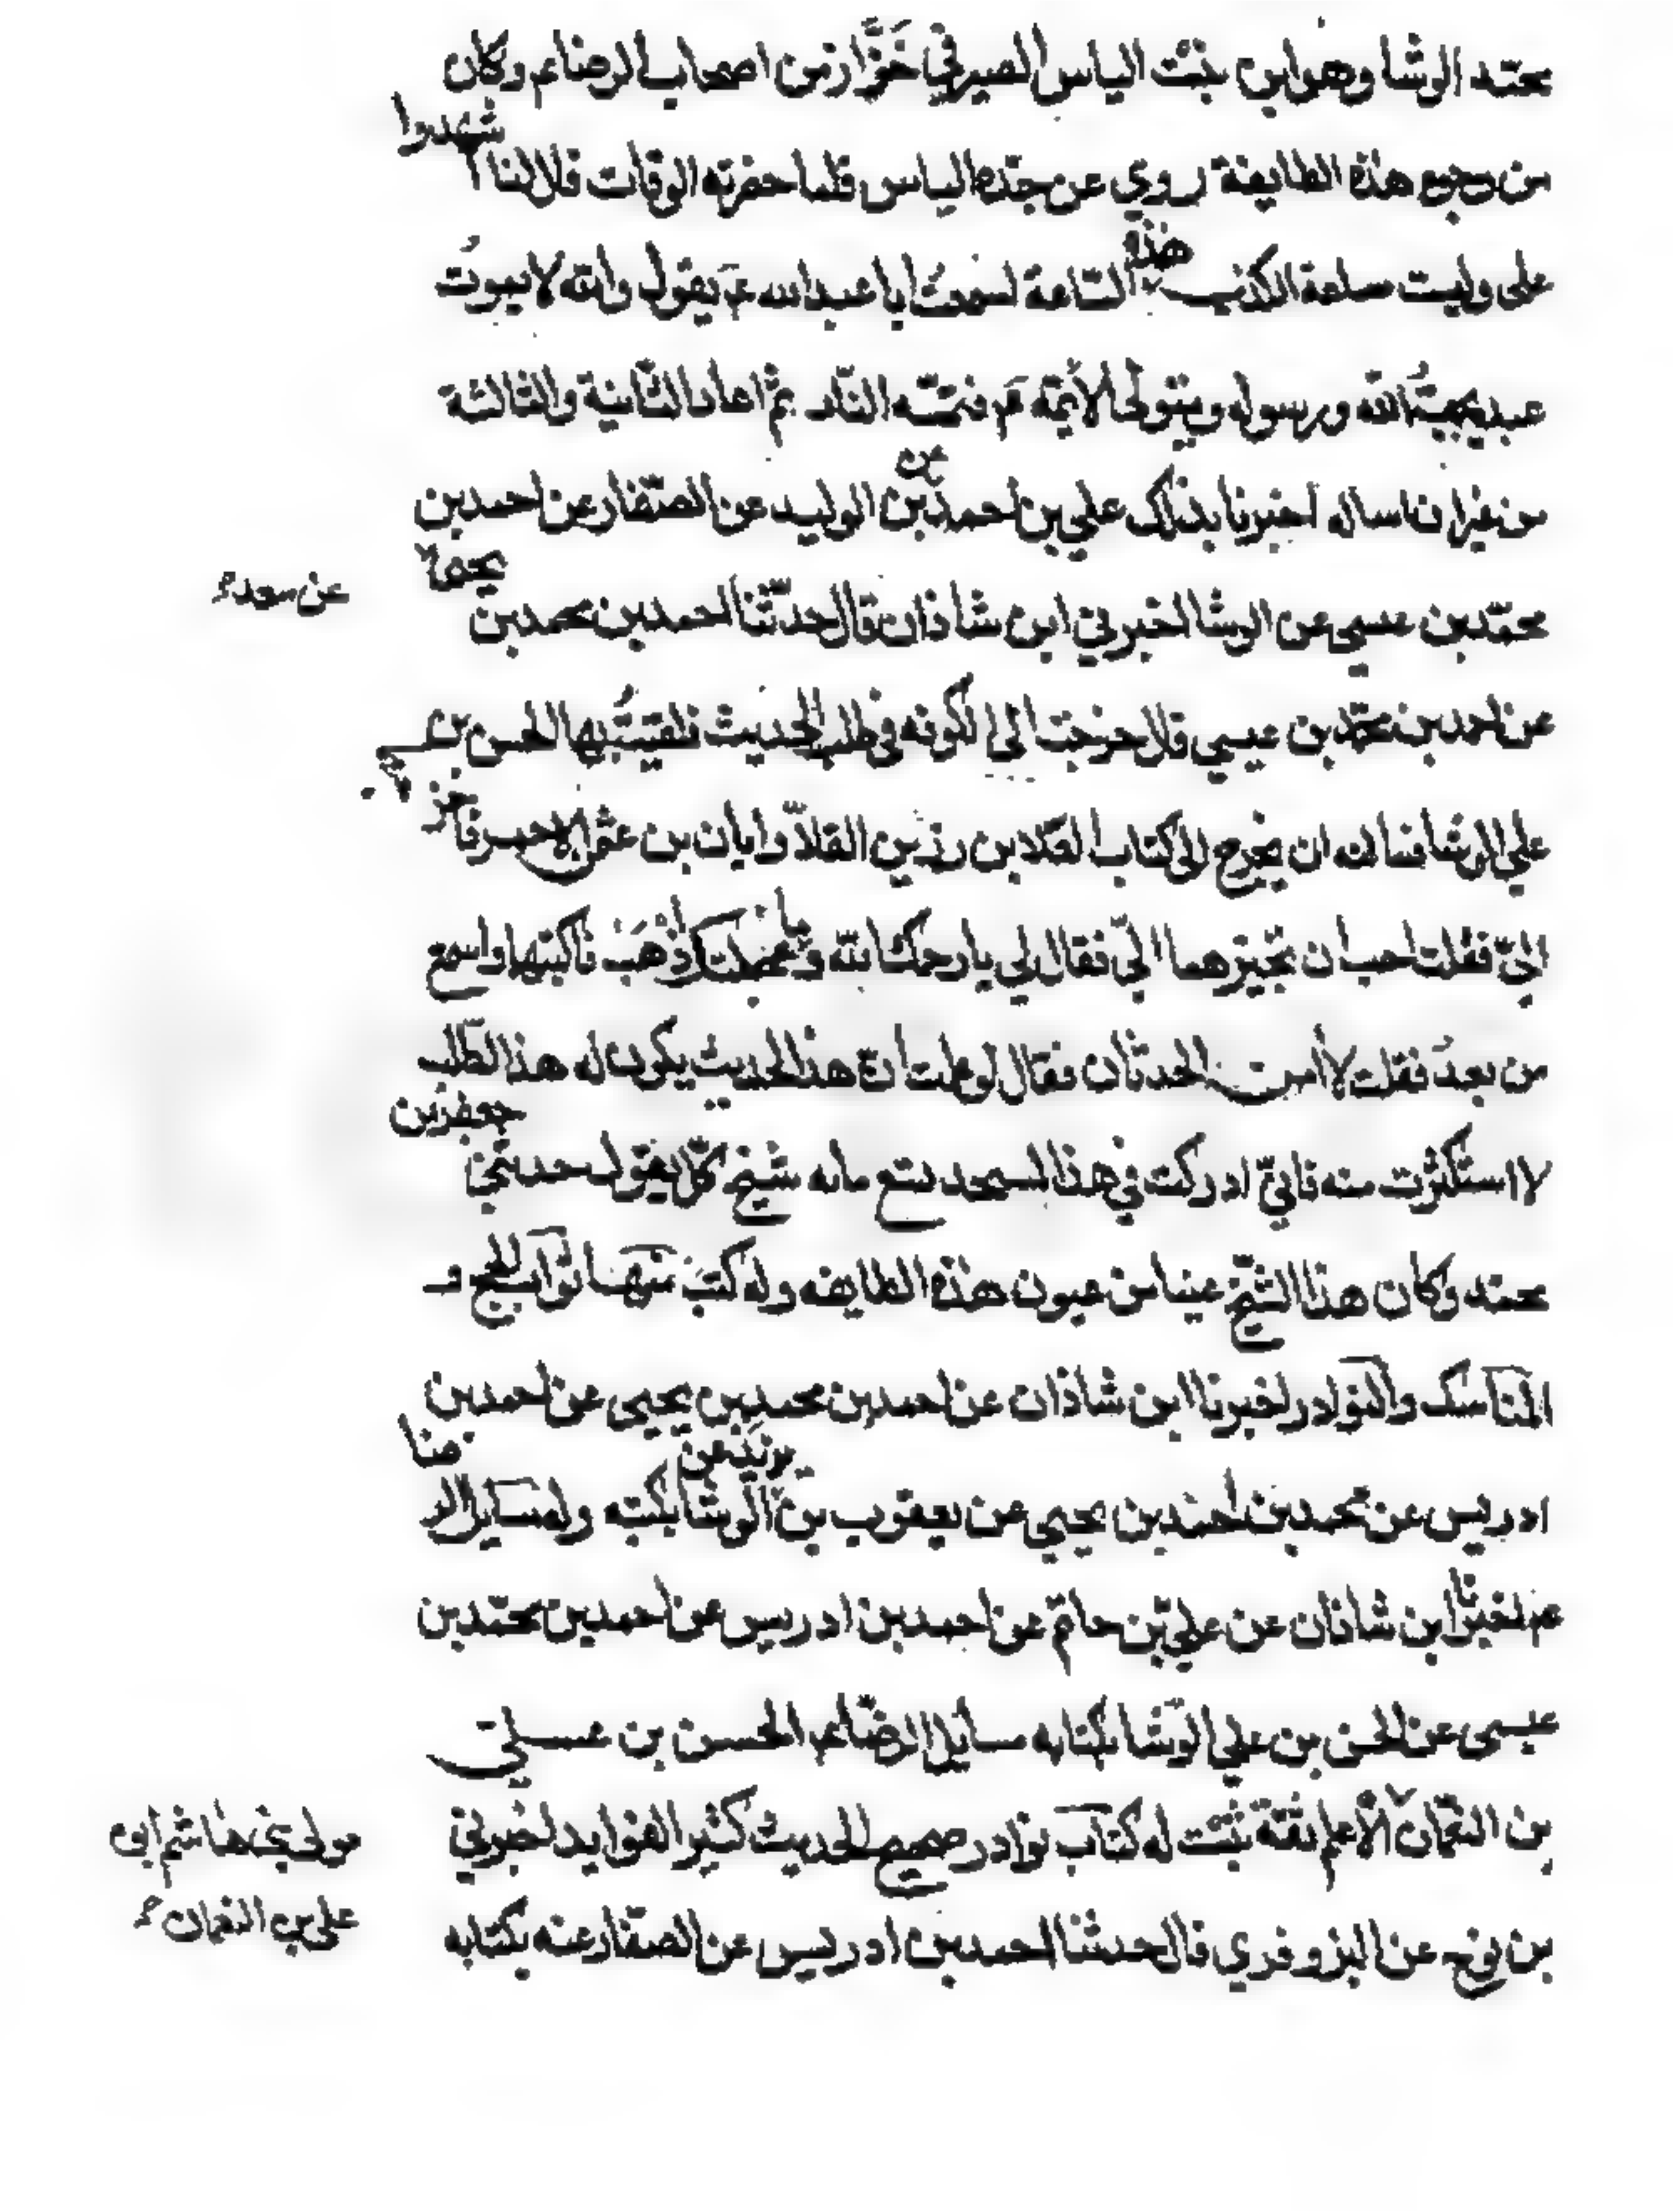 محمد الوشا وهو ابن بنت الياس الصيرفي خَزَّاز من اصحاب الرضا عم وكان
من وجوه هذه الطايفة روي عن جده الياس فلما حضرته الوفات قال لنا اشهدوا
على وليست ساعة الكذب هذه الساعة لسمعتُ ابا عبد الله عم يقول والله لا يموتُ
عبد يحبُّ الله ورسوله ويتولى الأئمة عم فتمسّه النار ثم اعاد الثانية والثالثة
من غير ان اساله اخبرنا بذلك علي بن احمد عن بن الوليد عن الصفار عن احمد بن
محمّد بن عيسى عن الوشا اخبرني ابن شاذان قال حدّثنا احمد بن محمد بن يحيى
عن سعد
عن احمد بن محمّد بن عيسي قال خرجت الى الكوفه في طلب الحديث فلقيتُ بها الحسن بن
علي الوشا فسالته ان يخرج الى كتاب العلا بن رزين القلاّ وابان بن عثمن الاحمر فاخرجهما
اليّ فقلت احب ان تجيزهما لي فقال لي يا رحمك الله وما عجلتك اذْهَبْ فاكتبها واسمع
من بعدُ فقلت لا أمن الحدثان فقال لو علمت أن هذا الحديث يكون له هذا الطلب
لاستكثرت منه فاني ادركت في هذا المسجد تسع مايه شيخ كلّ يقول حدثني جعفر بن
محمد وكان هذا الشيخ عينا من عيون هذه الطايفه وله كتب منها ثواب الحج و
المناسك والنوادر اخبرنا ابن شاذان عن احمد بن محمد بن يحيى عن احمد بن
ادريس عن محمد بن احمد بن يحيي عن يعقوب بن يزيد عن الوشا بكتبه وله مسايل الرضا
عم اخبرنا ابن شاذان عن علي بن حاتم عن احمد بن ادريس عن احمد بن محمّد بن
عيسى عن الحسن بن علي الوشا بكتابه مسايل الرضا عم الحسن بن علي
بن النعمان الأعلم ثقة ثبت له كتاب نوادر صحيح الحديث كثير الفوايد اخبرني
مولى بني هاشم ابي
علي بن النعمان
بن نوح عن البزوفري قال حدثنا احمد بن ادريس عن الصفار عنه بكتابه